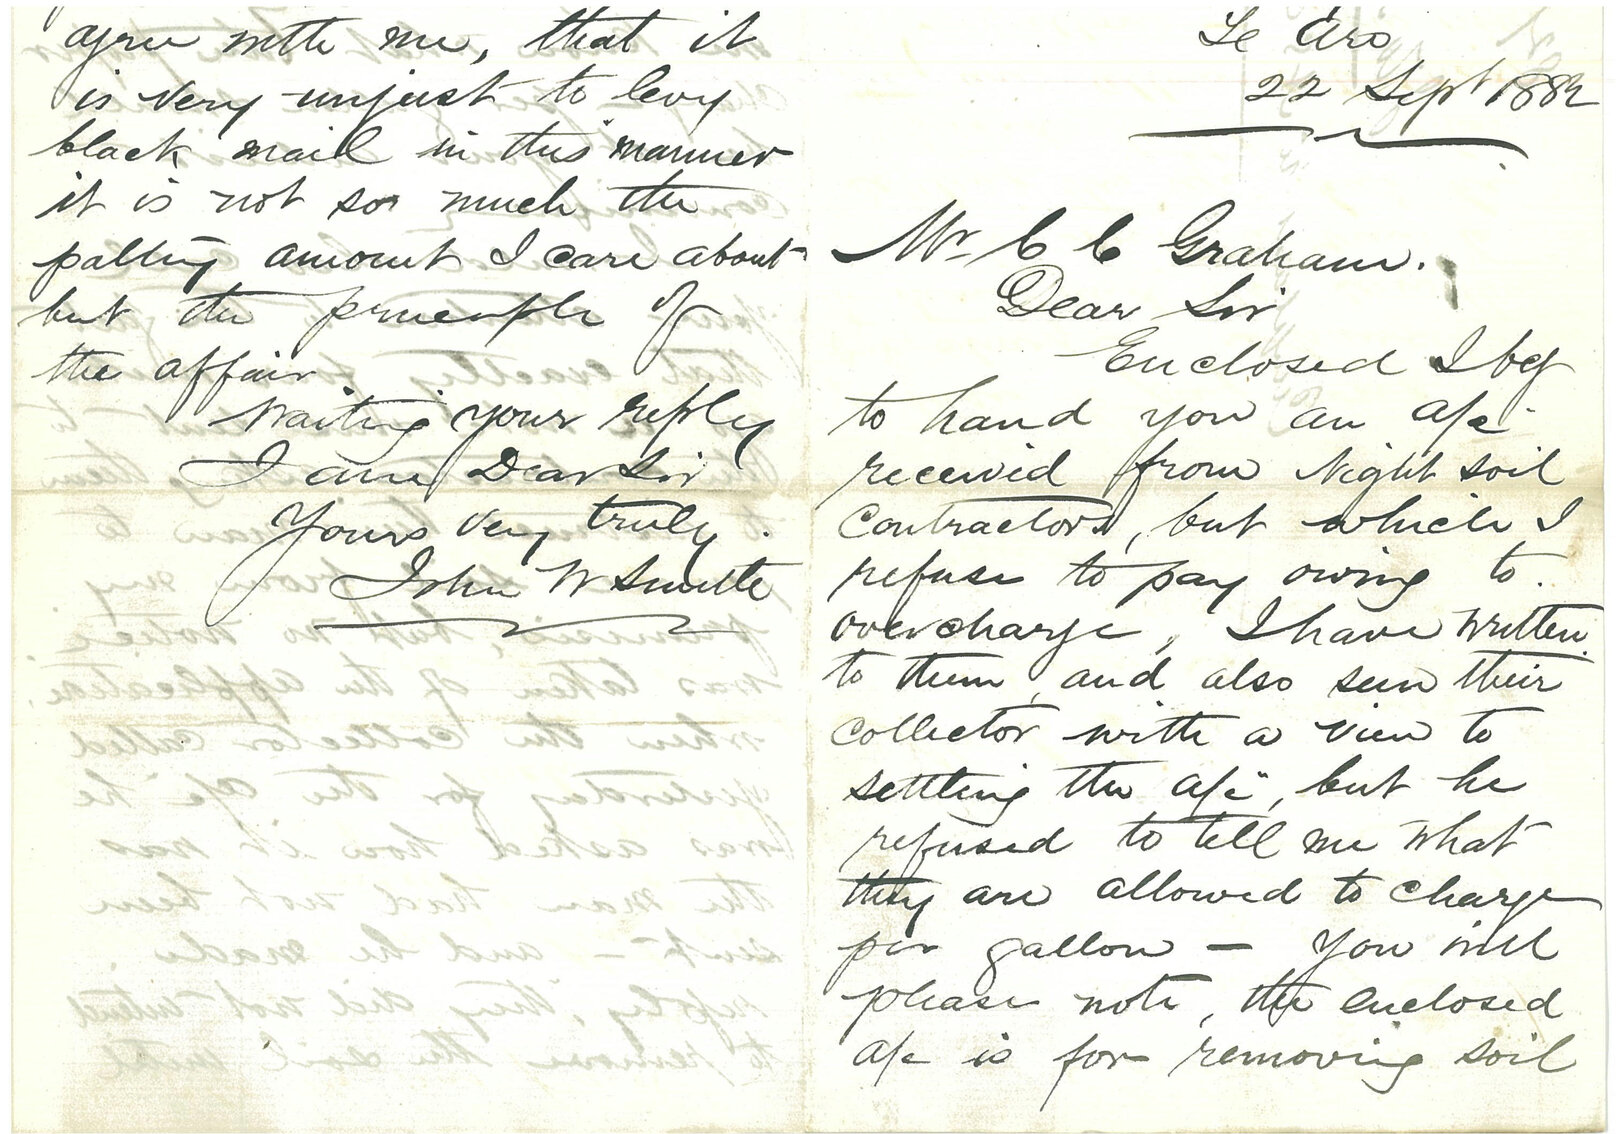 Te Aro
22 Sept 1882
Mr C C Graham.
Dear Sir
Enclosed I beg
to hand you an a/c
received from Night soil
Contractors, but which I
refuse to pay owing to
overcharge, I have written
to them, and also seen their
collector with a view to
settling the a/c, but he
refused to tell me what
they are allowed to charge
per gallon — You will
please note, the enclosed
a/c is for removing soil
agree with me, that it
is very unjust to levy
black mail in this manner
it is not so much the
paltry amount I care about
but the principle of
the affair.
Waiting your reply
I am Dear Sir
Yours very truly.
John W Smith